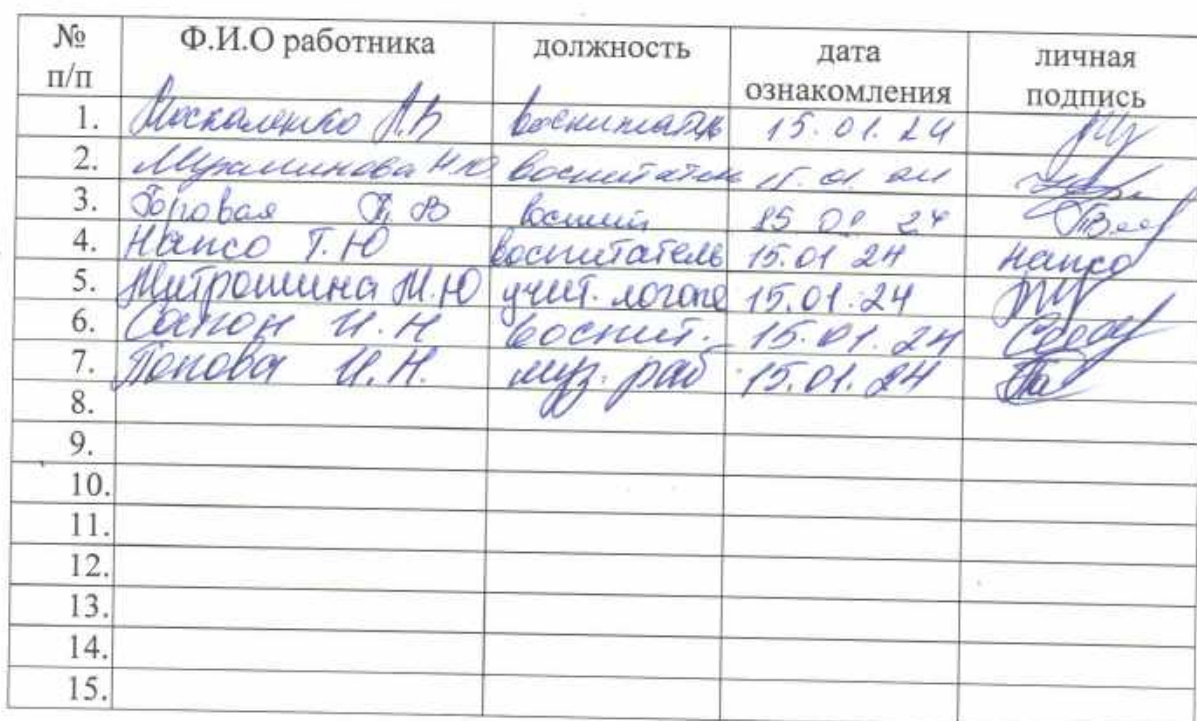 № п/п Ф.И.О работника должность дата ознакомления личная подпись
1. Москаленко А.В воспитатель 15.01.24
2. Н.Ю воспитатель 15.01.24
3. Боровая Т.В воспит 15 01 24
4. Напсо Т.Ю воспитатель 15.01 24 Напсо
5. Митрошина М.Ю учит. логопе 15.01.24
6. Сапон И.Н воспит. 15.01.24
7. Попова И.Н. муз. раб 15.01.24
8.
9.
10.
11.
12.
13.
14.
15.